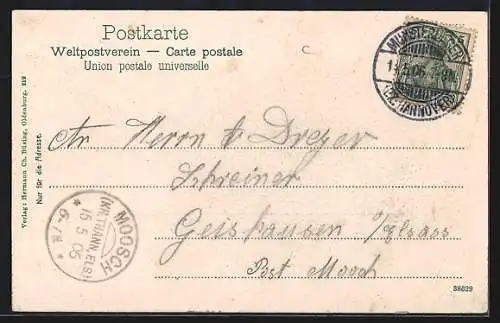 Postkarte
Weltpostverein — Carte postale
Union postale universelle
MUNSTERLAGER
(BZ. HANNOVER)
An Herrn Dreyer
Schreiner
Geishausen Elsass
Post Moosch
MOOSCH
(KR. THANN, ELS)
15 5 05
* 6-7N *
Nur für die Adresse.
Verlag: Hermann Ch. Büsing, Oldenburg. 212
38629